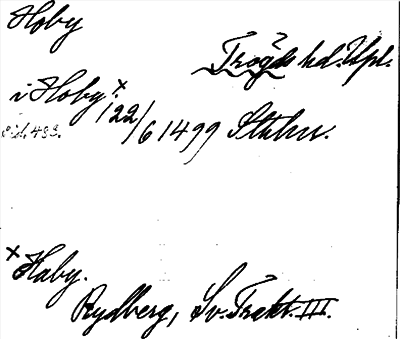 Hoby
Trögds hd. Upl.
i Hoby.x 22/6 1499 Sthlm.
sid. 433.
x Haby.
Rydberg, Sv. Trakt. III.